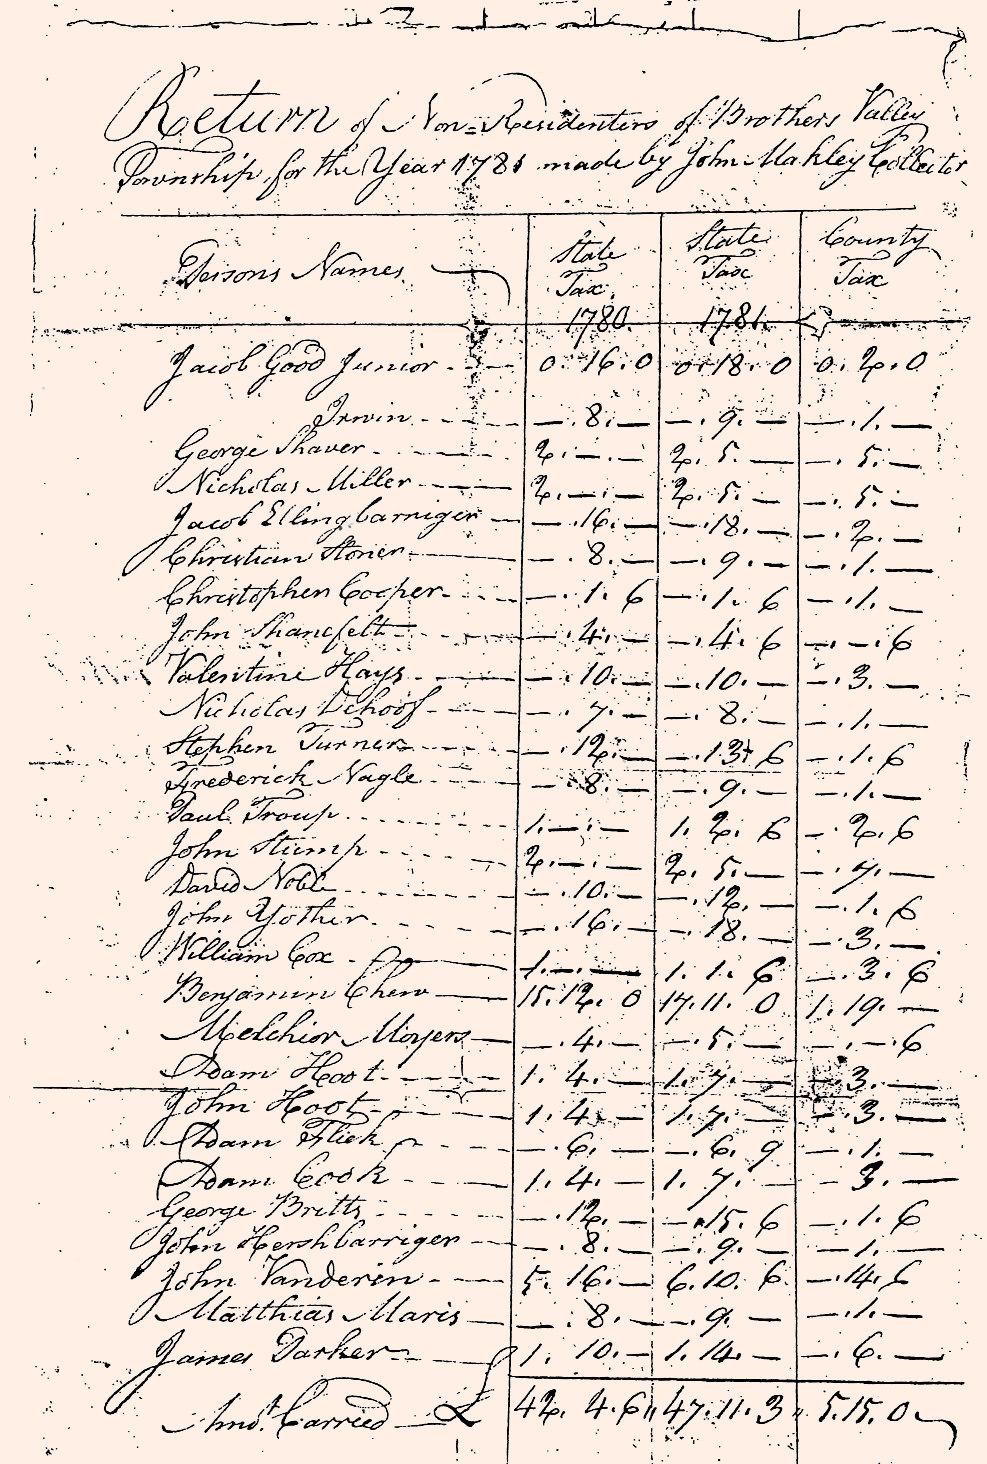 Return of Non-Residenters of Brothers Valley
Township for the Year 1781 made by John Markley Collector
Persons Names State Tax 1780. State Tax 1781. County Tax
Jacob Good Junior 0. 16. 0 0. 18. 0 0. 2. 0
Irwin - . 8. - - . 9. - - . 1. -
George Shaver 2. - . - 2. 5. - - . 5. -
Nicholas Miller 2. - . - 2. 5. - - . 5. -
Jacob Ellingbarniger - . 16. - - . 18. - - . 2. -
Christian Stoner - . 8. - - . 9. - - . 1. -
Christopher Cooper - . 1. 6 - . 1. 6 - . 1. -
John Shanefelt - . 4. - - . 4. 6 - . - . 6
Valentine Hays - . 10. - - . 10. - - . 3. -
Nicholas Schoof - . 7. - - . 8. - - . 1. -
Stephen Turner - . 12. - . 13. 6 - . 1. 6
Frederick Nagle - . 8. - - . 9. - - . 1. -
Paul Troup 1. - . - 1. 2. 6 - . 2. 6
John Stump 2. - . - 2. 5. - - . 7. -
David Noble - . 10. - - . 12. - . 1. 6
John Yother - . 16. - - . 18. - - . 3. -
William Cox 1. - . - 1. 1. 6 - . 3. 6
Benjamin Chew 15. 12. 0 17. 11. 0 1. 19. -
Melchior Moyers - . 4. - - . 5. - - . - . 6
Adam Hoot 1. 4. - 1. 7. - - . 3. -
John Hoot 1. 4. - 1. 7. - - . 3. -
Adam Flick - . 6. - - . 6. 9 - . 1. -
Adam Cook 1. 4. - 1. 7. - - . 3. -
George Britts - . 12. - - . 15. 6 - . 1. 6
John Hershbarriger - . 8. - - . 9. - - . 1. -
John Vanderin 5. 16. - 6. 10. 6. - . 14. 6
Matthias Maris - . 8. - - . 9. - - . 1. -
James Darker 1. 10. - 1. 14. - - . 6. -
Amot. Carried £ 42. 4. 6 " 47. 11. 3 " 5. 15. 0